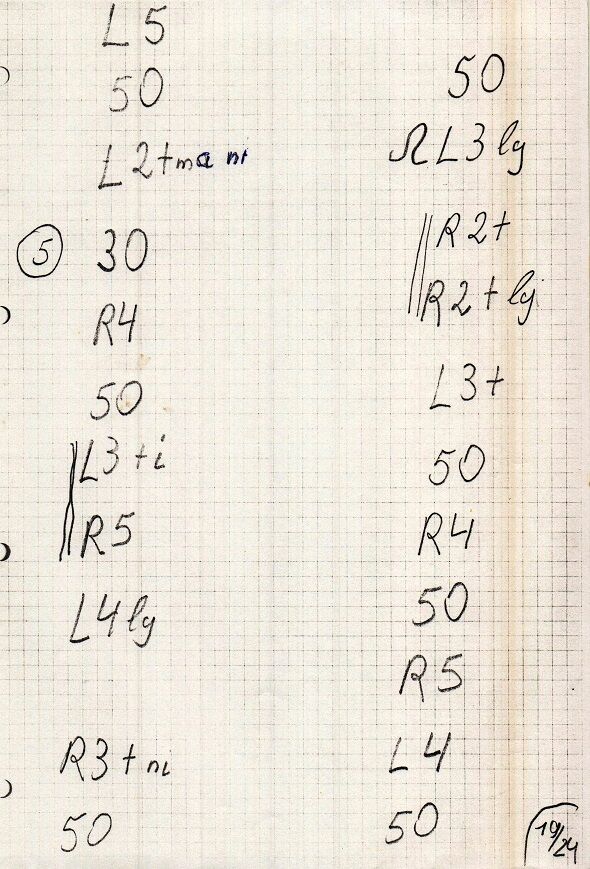 L5
50
L2+ma ni
5 30
R4
50
L3+i
R5
L4lg
R3+ni
50
50
ΩL3lg
R2+
R2+lg
L3+
50
R4
50
R5
L4
50
19/24